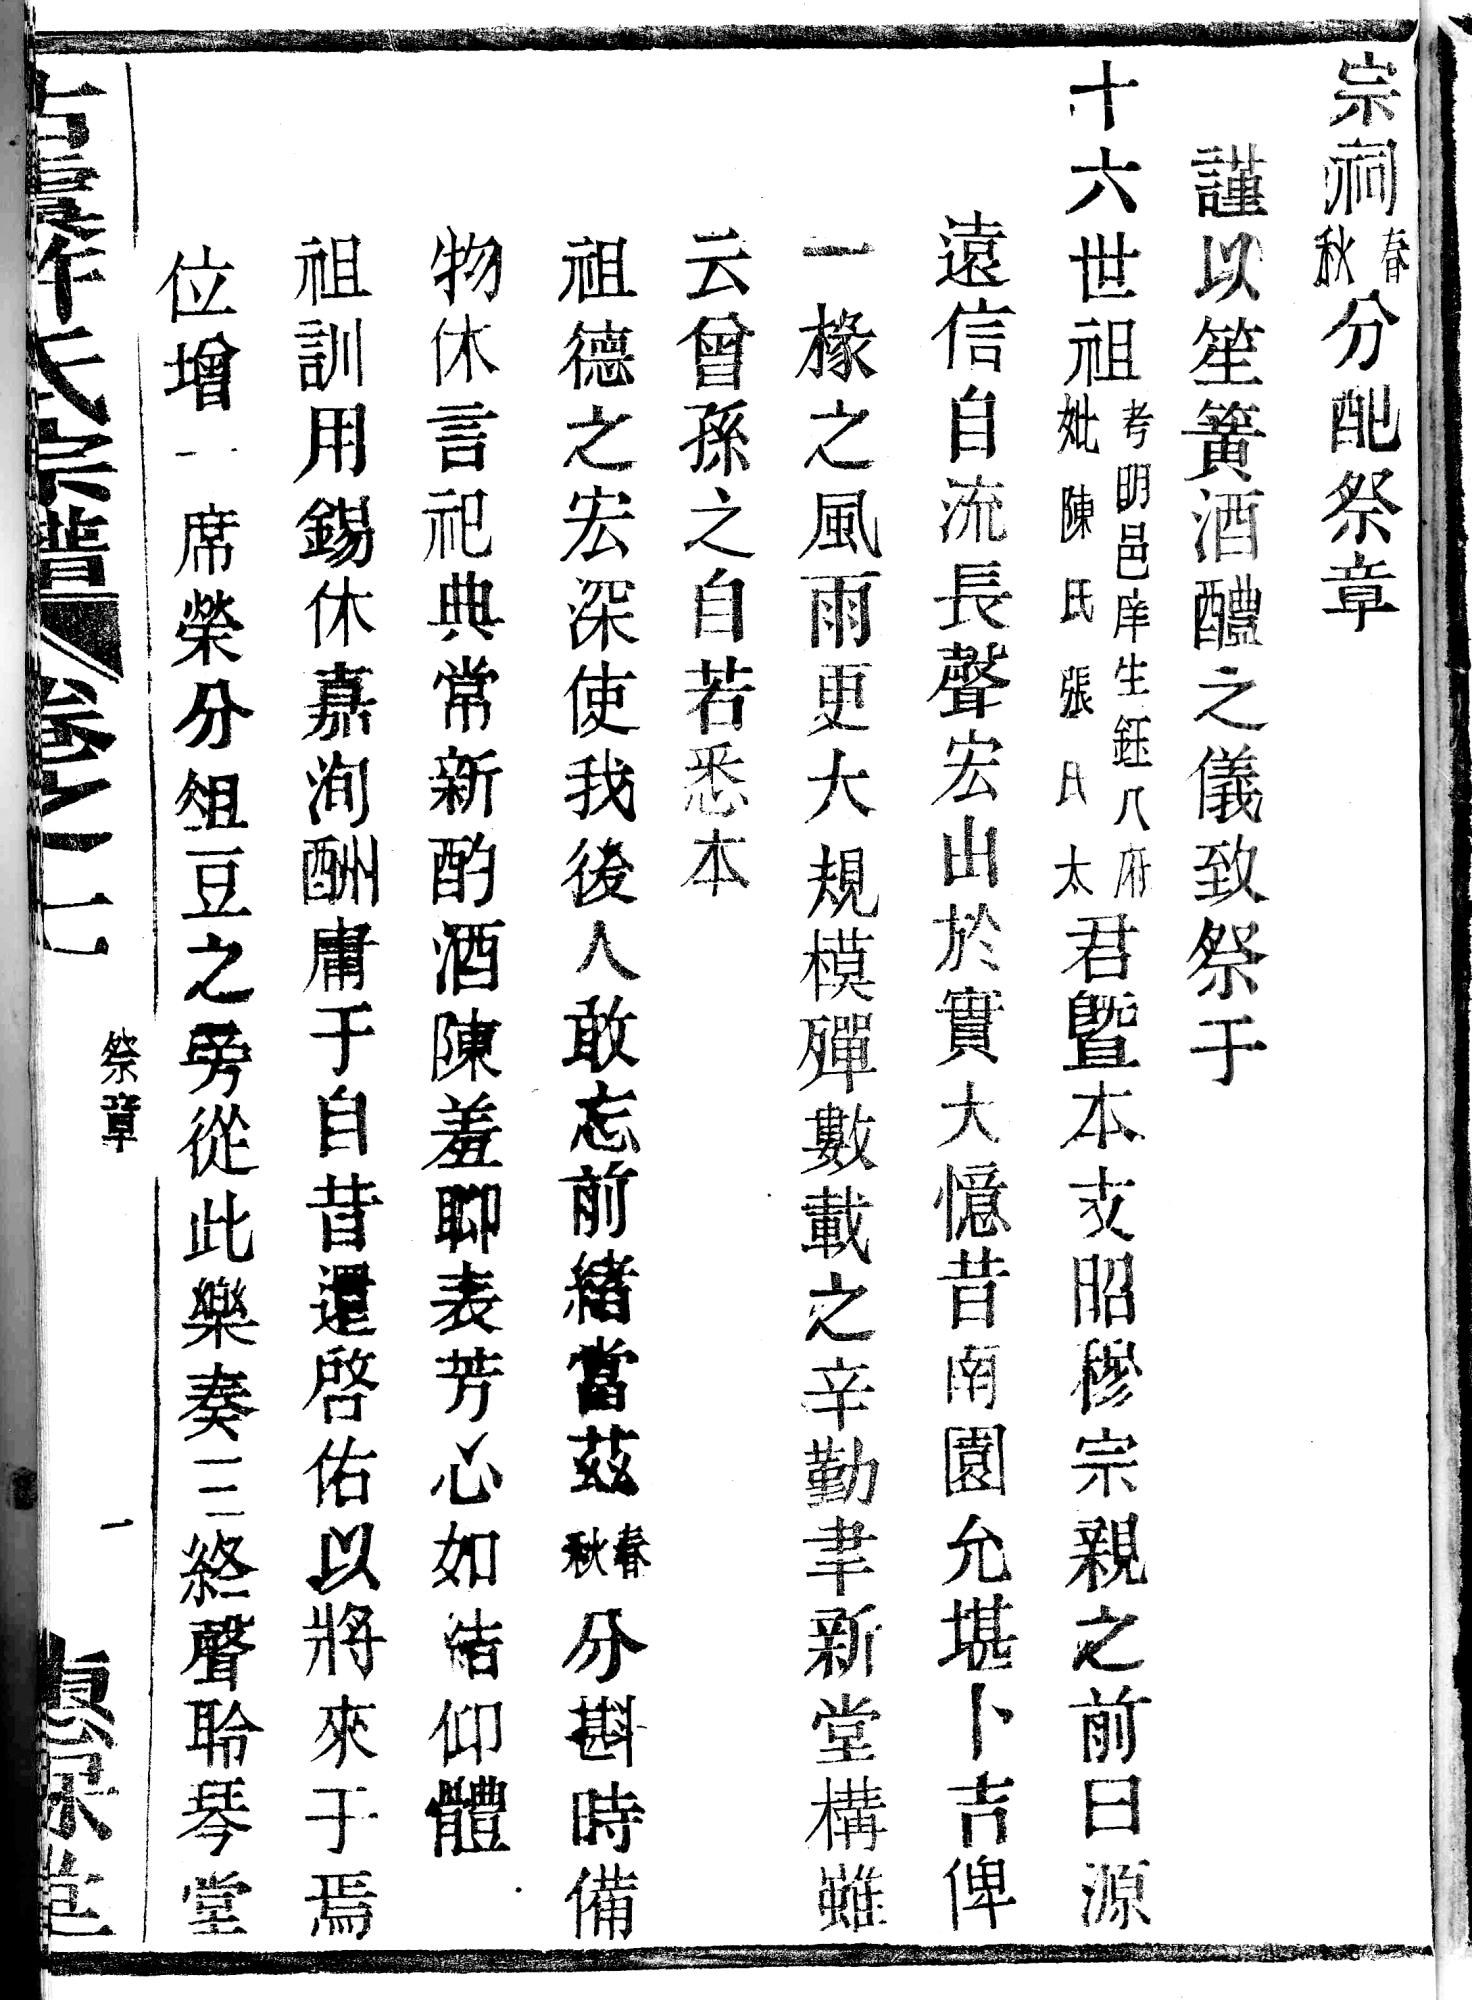 宗祠春秋分配祭章
謹以笙簧酒醴之儀致祭于
十六世祖考明邑庠生鈺八府妣陳氏張氏太君暨本支昭穆宗親之前曰源
遠信自流長聲宏出於實大憶昔南園允堪卜吉俾
一椽之風雨更大規模殫數載之辛勤聿新堂構雖
云曾孫之自若悉本
祖德之宏深使我後人敢忘前緒當茲春秋分斟時備
物休言祀典常新酌酒陳羞聊表芳心如結仰體
祖訓用錫休嘉洵酬庸于自昔還啓佑以將來于焉
位增一席榮分俎豆之旁從此樂奏三終聲聆琴堂
古虞許氏宗譜 卷之一 祭章 一 惠保堂